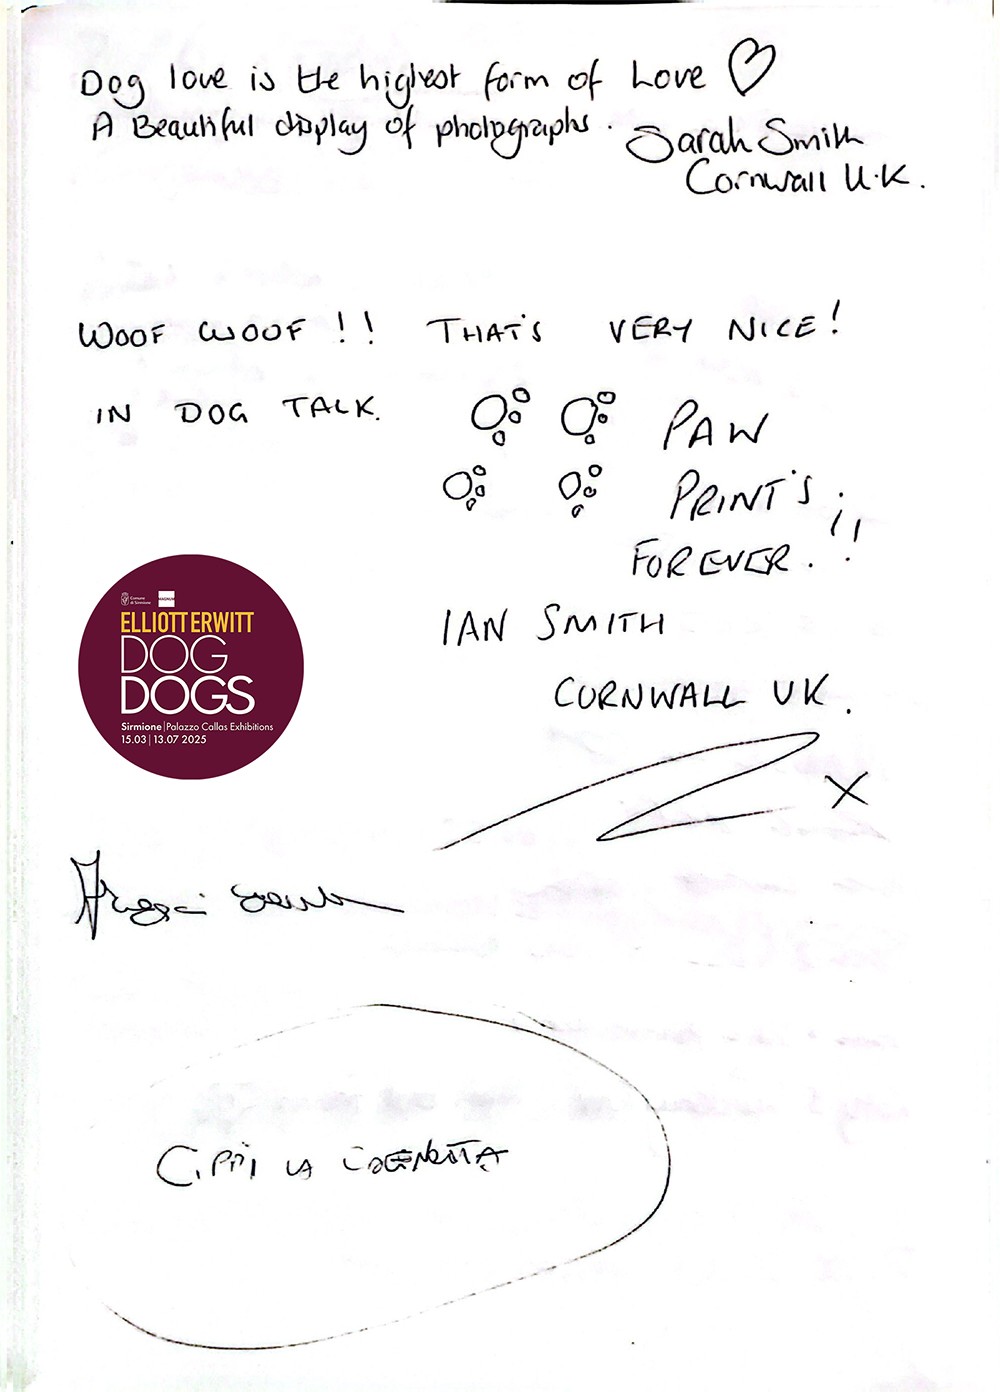 Dog love is the highest form of Love
A Beautiful display of photographs.
Sarah Smith
Cornwall U.K.
WOOF WOOF !! THAT'S VERY NICE!
IN DOG TALK.
PAW
PRINT'S
FOREVER.!!
IAN SMITH
CORNWALL UK.
X
Comune
di Sirmione
MAGNUM
ELLIOTT ERWITT
DOG
DOGS
Sirmione | Palazzo Callas Exhibitions
15.03 | 13.07 2025
LA